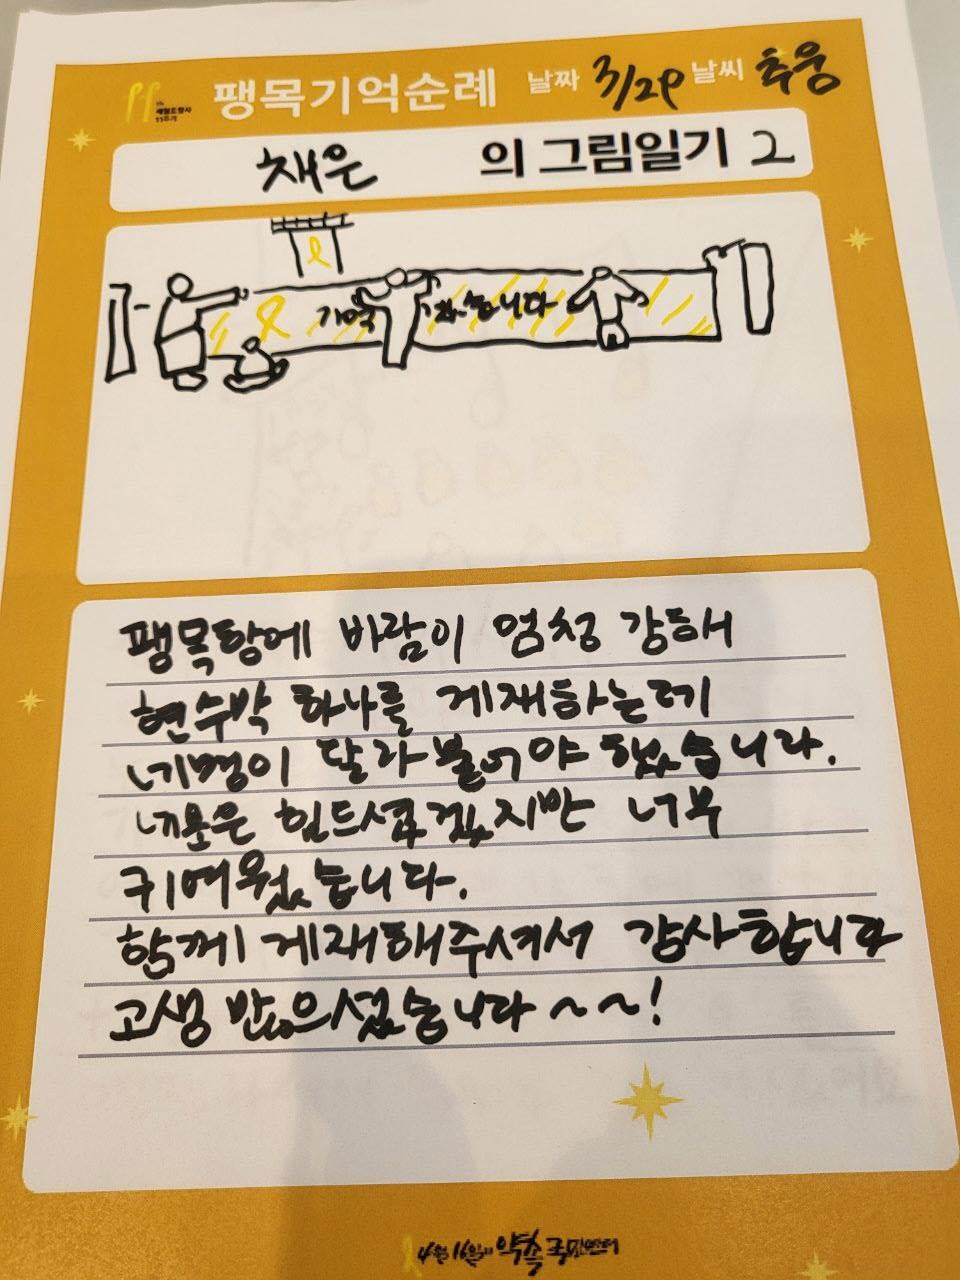 세월호참사
11주기
팽목기억순례 날짜 3/29 날씨 추웅
채은 의 그림일기 2
기억 하겠습니다
팽목항에 바람이 엄청 강해
현수박 하나를 게재하는데
네명이 달라붙어야 했습니다.
네분은 힘드셨겠지만 너무
귀여웠습니다.
함께 게재해주셔서 감사합니다
고생 많으셨습니다~~!
4월16일의 약속 국민연대